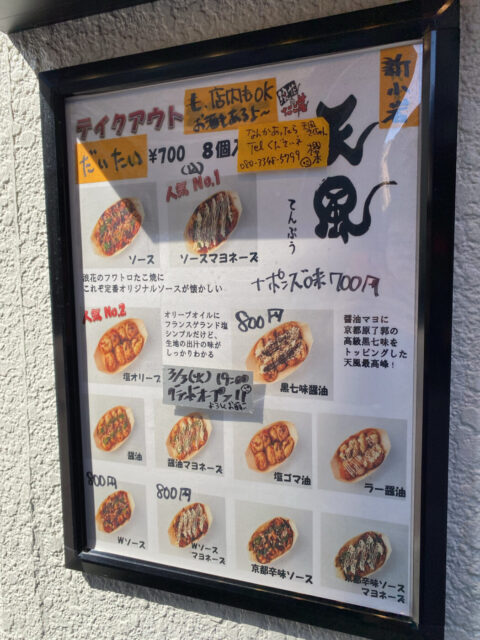 テイクアウト
も、店内もOK
お酒もあるよ〜
だいたい
¥700 8個入
なんかあったら
Telください
天風
てんぷう
人気 No.1
ソース
ソースマヨネーズ
浪花のフワトロたこ焼に
これぞ定番オリジナルソースが懐かしい
+ポンズ味700円
人気 No.2
塩オリーブ
オリーブオイルに
フランスゲランド塩
シンプルだけど、
生地の出汁の味が
しっかりわかる
800円
黒七味醤油
醤油マヨに
京都原了郭の
高級黒七味を
トッピングした
天風最高峰！
3/3(火) 19:00
グランドオープン!!
醤油
醤油マヨネーズ
塩ゴマ油
ラー醤油
800円
Wソース
800円
Wソース
マヨネーズ
京都辛味ソース
京都辛味ソース
マヨネーズ